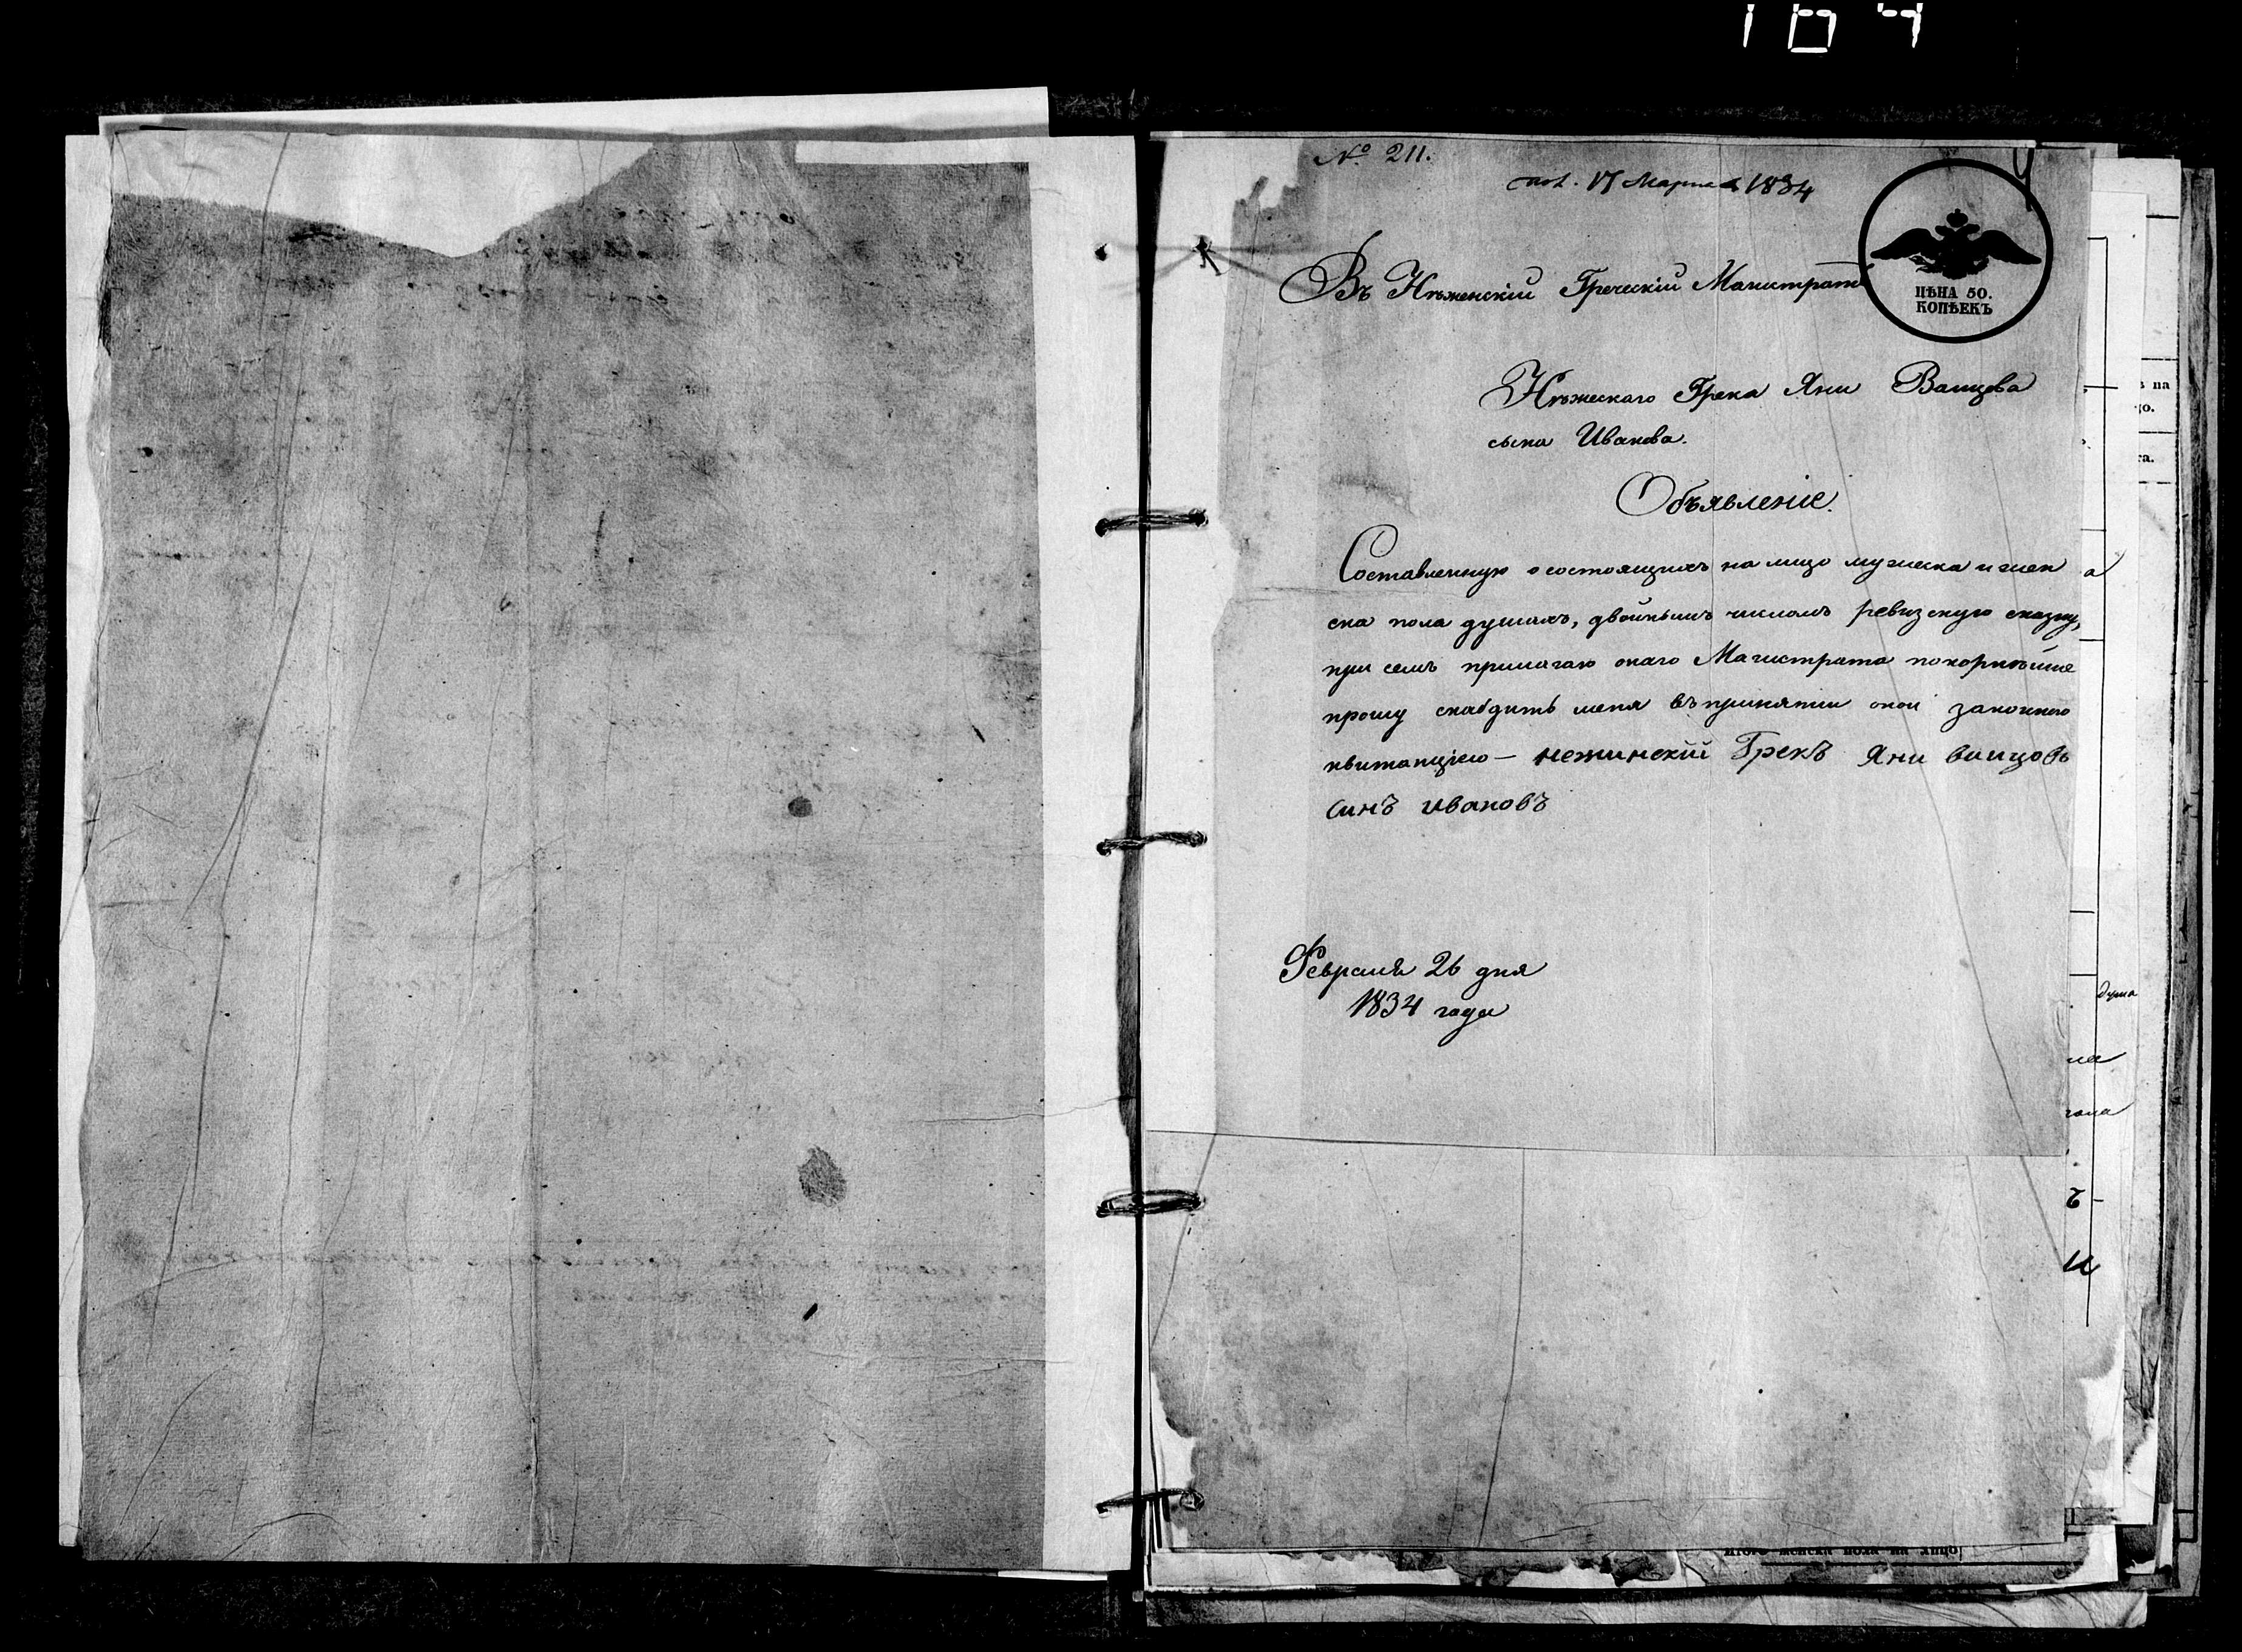 № 211.
пол. 17 Марта 1834
Въ Нѣженскій Греческій Магистратъ
ЦѢНА 50.
КОПѢЕКЪ
Нѣжескаго Грека Яни Ванцова
сына Иванова.
Объявленіе.
Составленную о состоящихъ на лицо мужеска и жен
ска пола душахъ, двойнымъ числомъ ревизскую сказку,
при семъ прилагаю онаго Магистрата покорнѣйше
прошу снабдить меня въ принятии оной законною
квитанціею — нежинскій Грекъ Яни ванцовъ
синъ ивановъ
Февраля 26 дня
1834 года
Итого женска пола на лицо